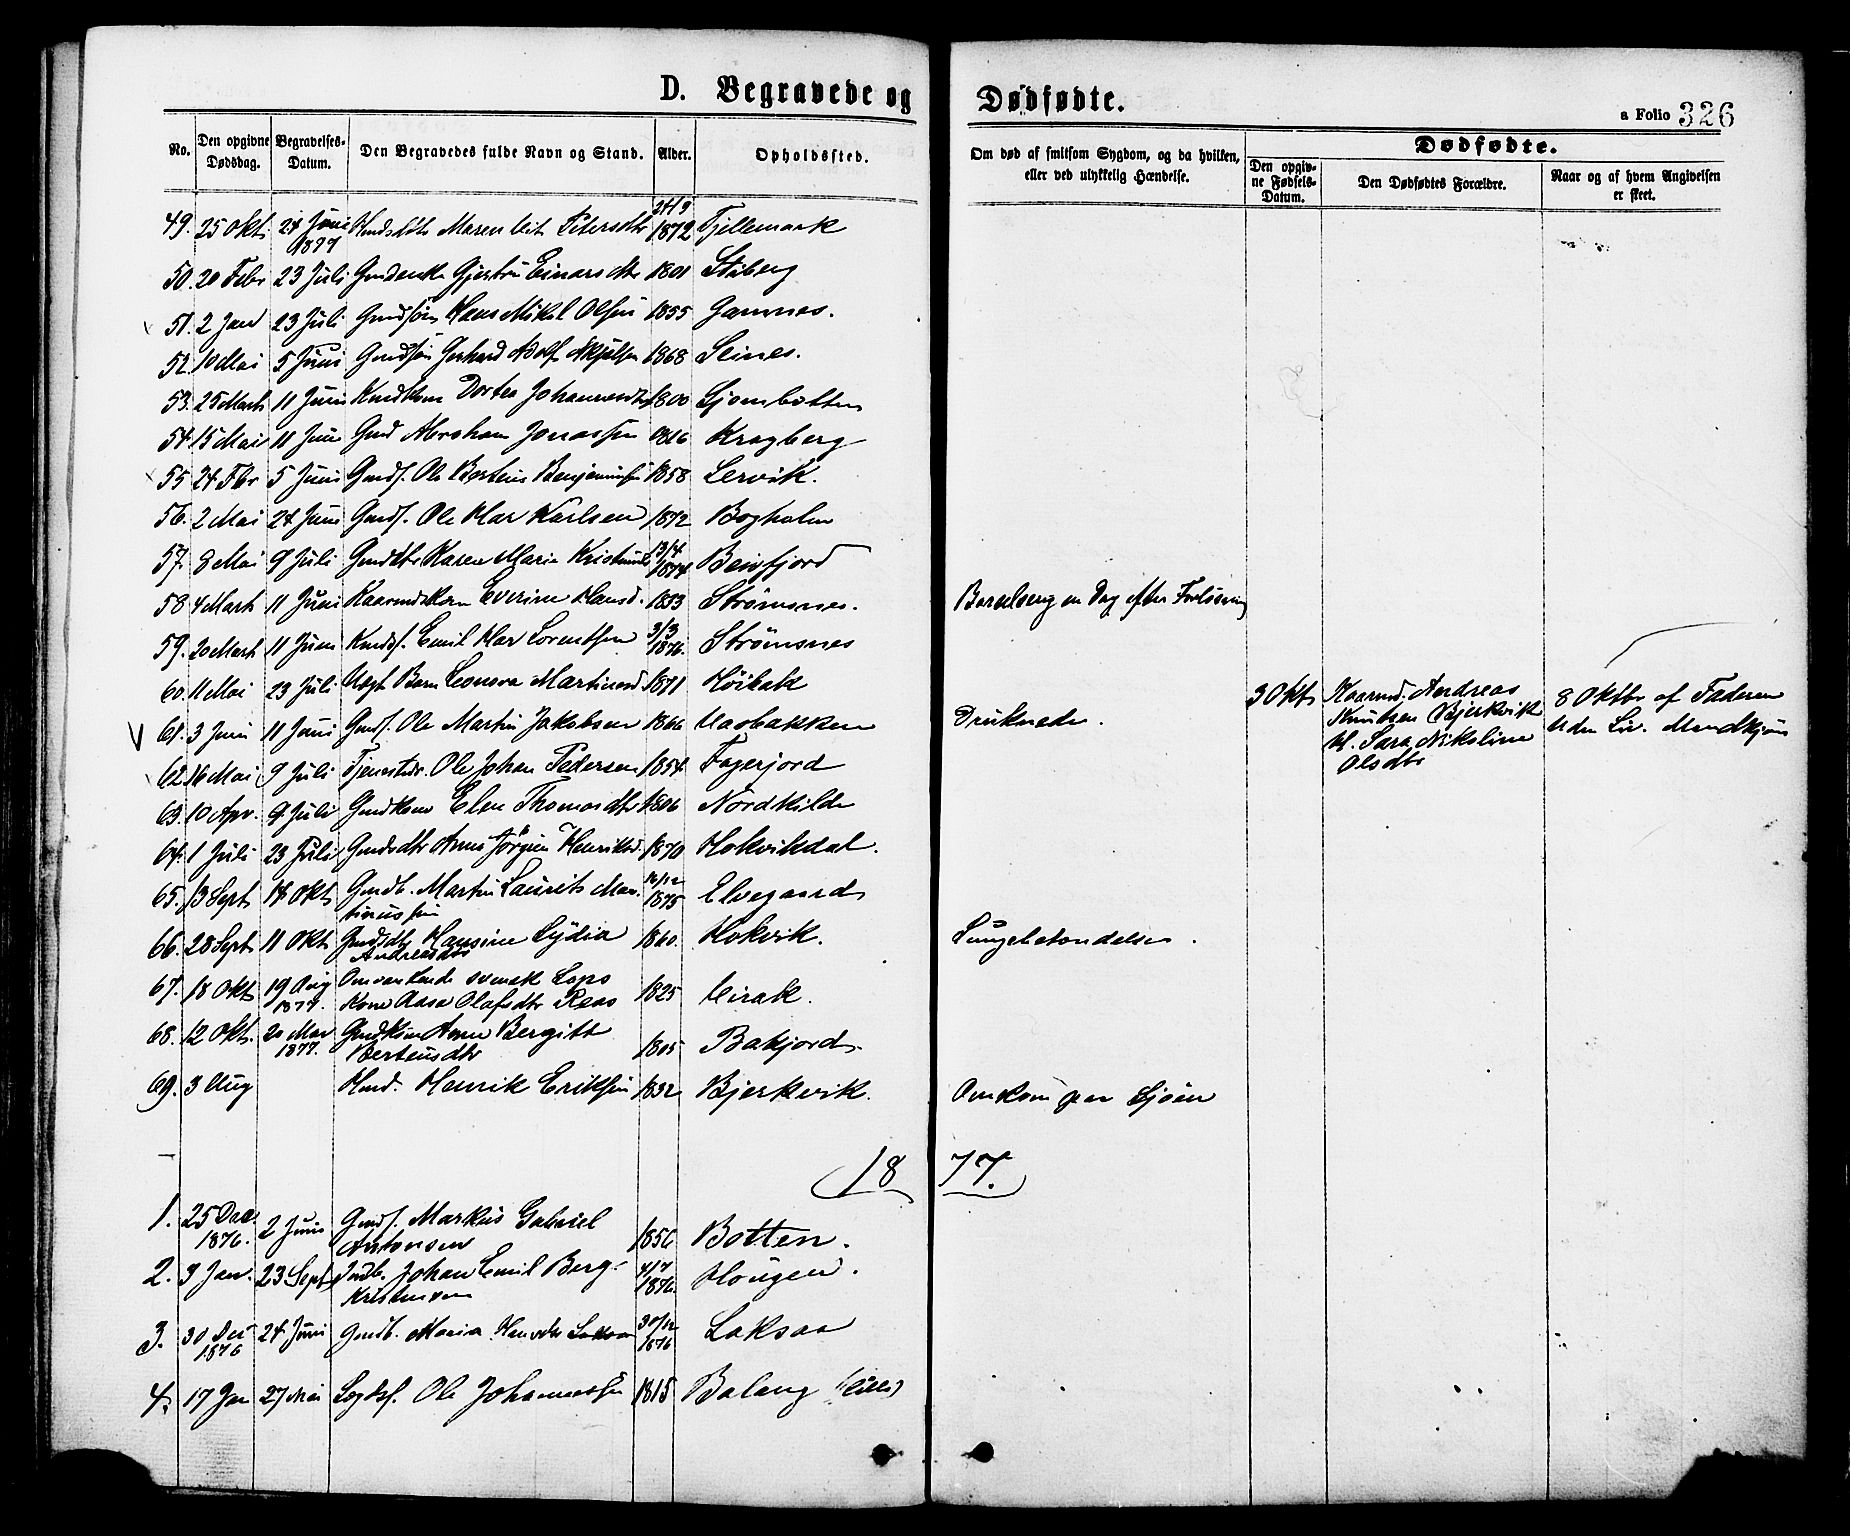 D. Begravede og Dødfødte.
a Folio 326
No. Den opgivne Dødsdag. Begravelses-Datum. Den Begravedes fulde Navn og Stand. Alder. Opholdssted. Om død af smitsom Sygdom, og da hvilken, eller ved ulykkelig Hændelse. Dødfødte. Den opgivne Fødsels-Datum. Den Dødfødtes Forældre. Naar og af hvem Angivelsen er skeet.
49. 25 Okt. 24 Juni 1877 Maren Petersdtr 24/9 1872 Fjellemark
50. 20 Febr 23 Juli Gmdenke Gjertru Einarsdtr 1801 Stiberg
51. 2 Jan 23 Juli Gmdsøn Hans Mikal Olsen 1855 Gamnes.
52. 10 Mai 5 Juni Gmdsøn Gerhard Adolf 1868 Leines.
53. 25 Marts 11 Juni Kmdkone Dortea Johannesdtr 1800 Sjombotten
54. 15 Mai 11 Juni Gmd Abraham Jonassen 1816 Kragberg
55 24 Fbr 5 Juni Gmds. Ole Berteus Benjaminsen 1858 Lervik.
56. 2 Mai 24 Juni Gmds. Ole Mar Karlsen 1872 Bogholm
57. 8 Mai 9 Juli Gmddtr Karen Maria 13/4 1874 Beisfjord
58 4 Marts 11 Juni Kaarmdskone Everine Hansd. 1833 Strømsnes. Barselseng en Dag efter Forløsning
59. 20 Marts 11 Juni Kmds. Emil Mar Lorentsen 3/3 1876. Strømsnes
60. 11 Mai 23 Juli Uægt Barn Leonora Martinusd 1871 Höibak
61. 3 Juni 11 Juni Gmds. Ole Martin Jakobsen 1866 Haabakken Druknede.
3 Okt Kaarmd. Andreas Knutsen Bjerkvik
H. Sara Nikoline Olsdtr
8 Oktbr af Faderen
Uden Liv.
62. 16 Mai 9 Juli Tjenestedr. Ole Johan Pedersen 1854 Fagerjord
63. 10 Apr. 9 Juli Gmdkone Elen Thomasdtr 1806 Nordkilde
64. 1 Juli 23 Juli Gmdsdtr Anne Jørgine Henriksd. 1870 Hokvikdal.
65. 13 Sept 14 Okt Gmdb. Martin Laurits Mar-
tinussen 1875 Elvegaard
66. 28 Sept 11 Okt Gmdsdtr Hansine Lydia
Andreasdtr 1860. Hokvik. Lungebetændelse.
67. 18 Okt 19 Aug 1877. Omvankende svensk Laps
Kone Aasa Olafsdtr Reas 1825
68. 12 Okt. 20 Mai 1877. Gmdkone Anne Bergitt
Berteusdtr 1805 Bakjord.
69. 3 Aug Hmd. Henrik Eriksen 1832 Bjerkvik. Omkom paa Sjøen
1877.
1. 25 Dec. 1876. 2 Juni Gmds. Markus Gabriel
Antonsen 1856 Botten.
2. 3 Jan. 23 Sept Indb. Johan Emil Berg-
Kristensen 4/7 1876. Hougen.
3. 30 Dec 1876 24 Juni Gmdb. Maria 30/12 1876 Laksaa
4. 17 Jan 27 Mai Lægdsl. Ole Johannessen 1815 Balang (lille)